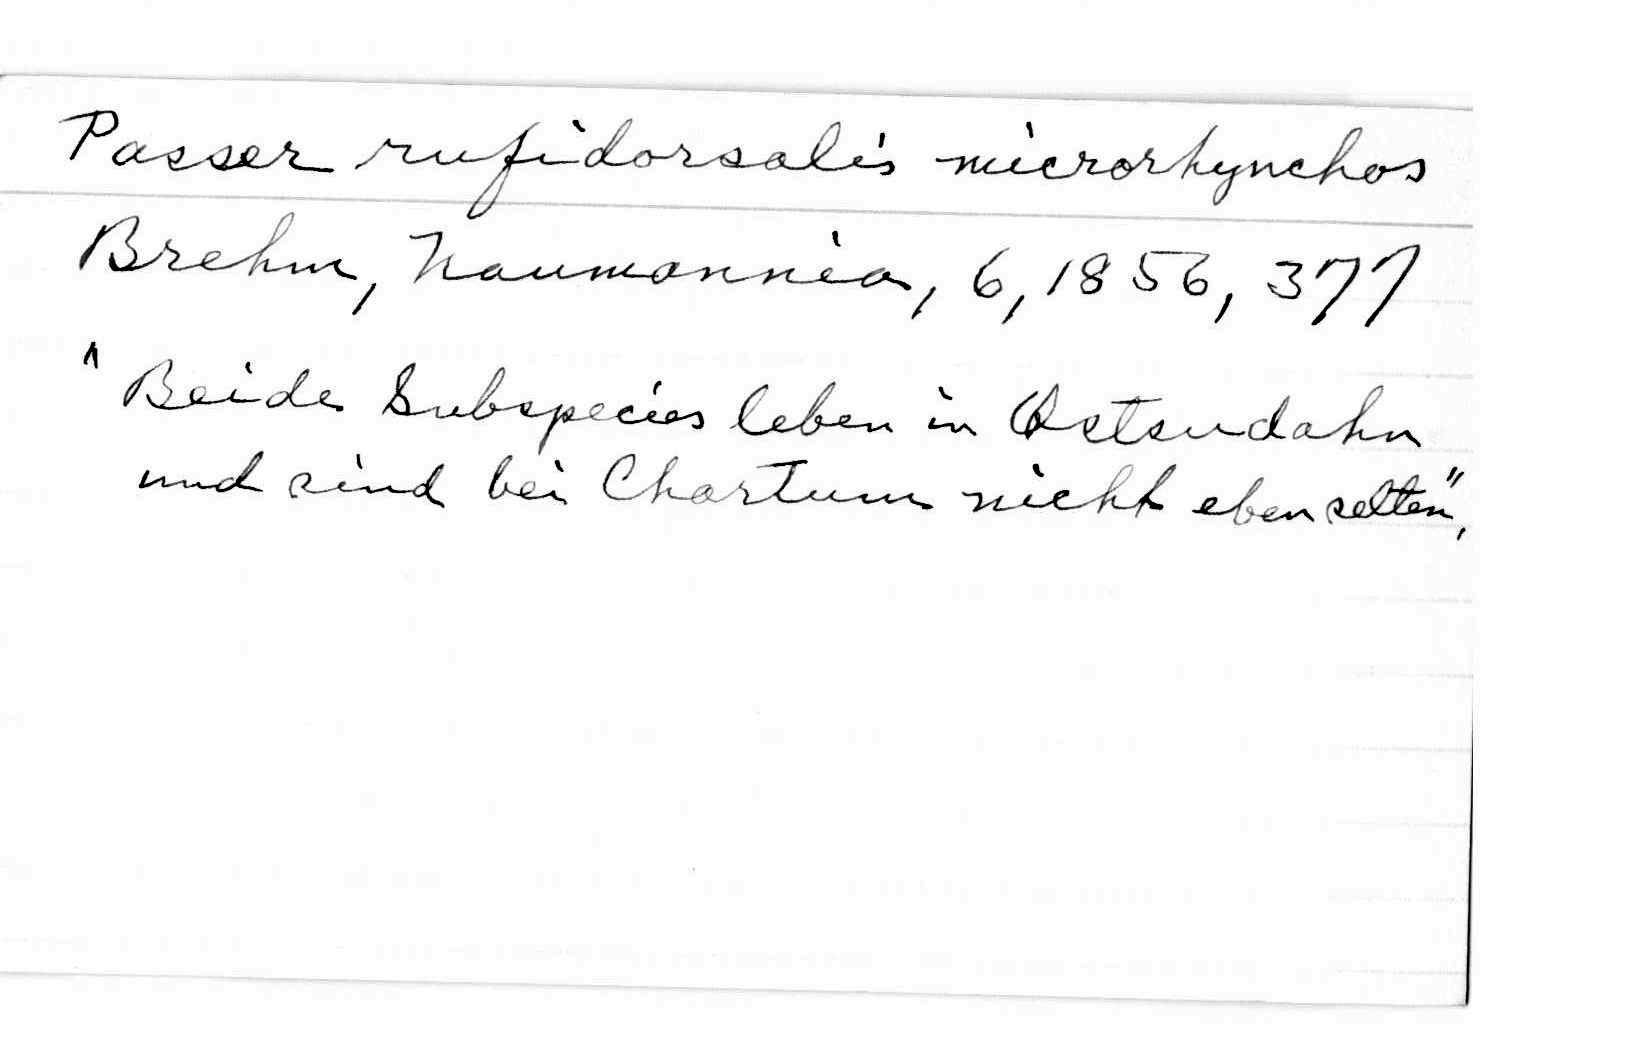 Passer rufidorsalis microrhynchos
Brehm, Naumannia, 6, 1856, 377
"Beide Subspecies leben in Ostsudahn
und sind bei Chartum nicht eben selten",